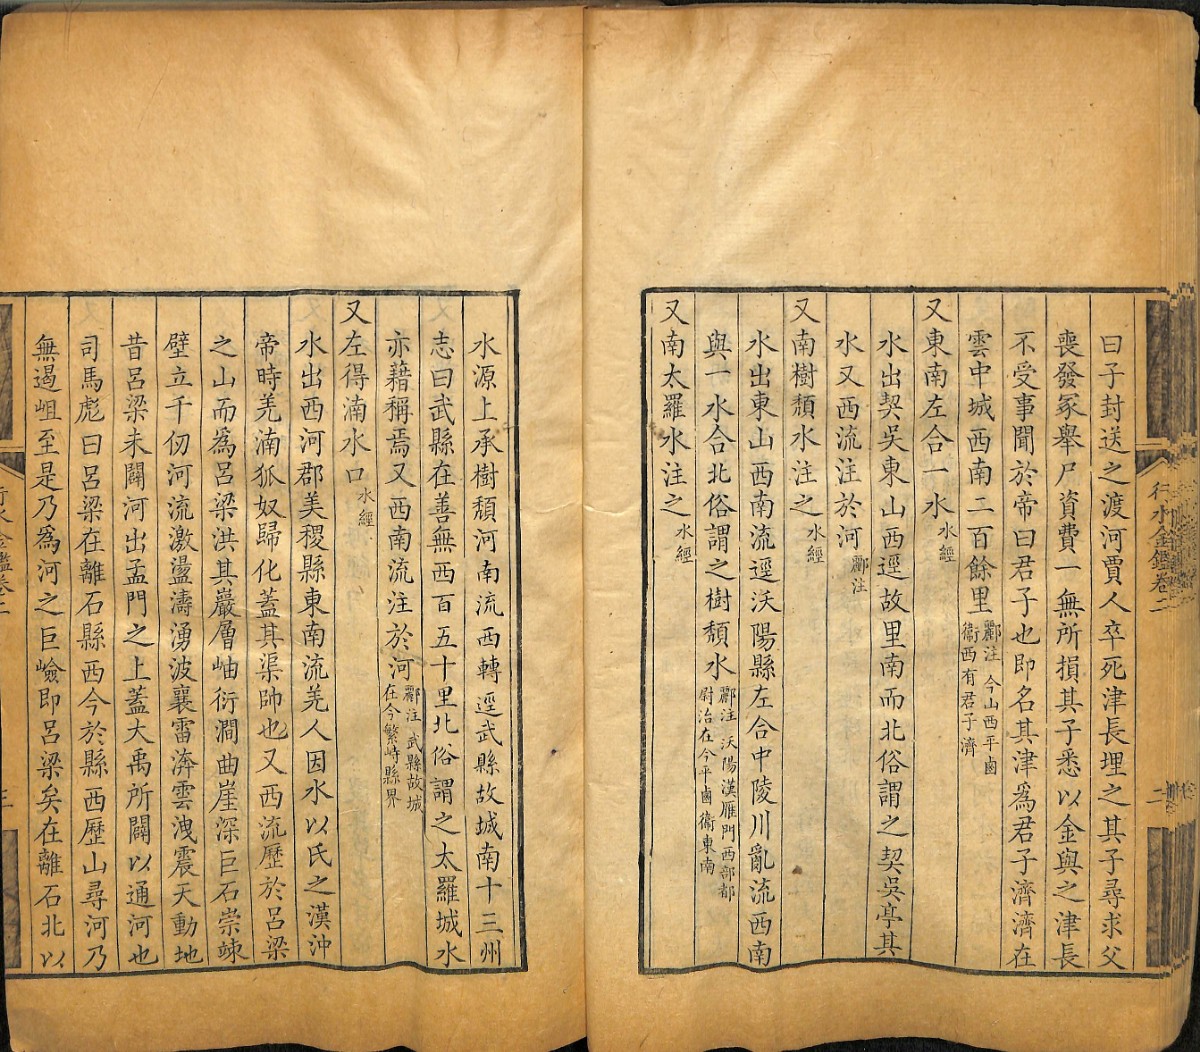 曰子封送之渡河賈人卒死津長埋之其子尋求父
喪發冢舉尸資費一無所損其子悉以金與之津長
不受事聞於帝曰君子也即名其津爲君子濟濟在
雲中城西南二百餘里酈注 今山西平鹵衞西有君子濟
又東南左合一水水經
水出契吳東山西逕故里南而北俗謂之契吳亭其
水又西流注於河酈注
又南樹頹水注之水經
水出東山西南流逕沃陽縣左合中陵川亂流西南
與一水合北俗謂之樹頹水酈注 沃陽漢雁門西部都尉治在今平鹵衞東南
又南太羅水注之水經
行水金鑑卷二
二
水源上承樹頹河南流西轉逕武縣故城南十三州
志曰武縣在善無西百五十里北俗謂之太羅城水
亦藉稱焉又西南流注於河酈注 武縣故城在今繁峙縣界
又左得湳水口水經
水出西河郡美稷縣東南流羌人因水以氏之漢沖
帝時羌湳狐奴歸化蓋其渠帥也又西流歷於呂梁
之山而爲呂梁洪其巖層岫衍澗曲崖深巨石崇竦
壁立千仞河流激盪濤湧波襄雷渀雲洩震天動地
昔呂梁未闢河出孟門之上蓋大禹所闢以通河也
司馬彪曰呂梁在離石縣西今於縣西歷山尋河乃
無遏岨至是乃爲河之巨嶮即呂梁矣在離石北以